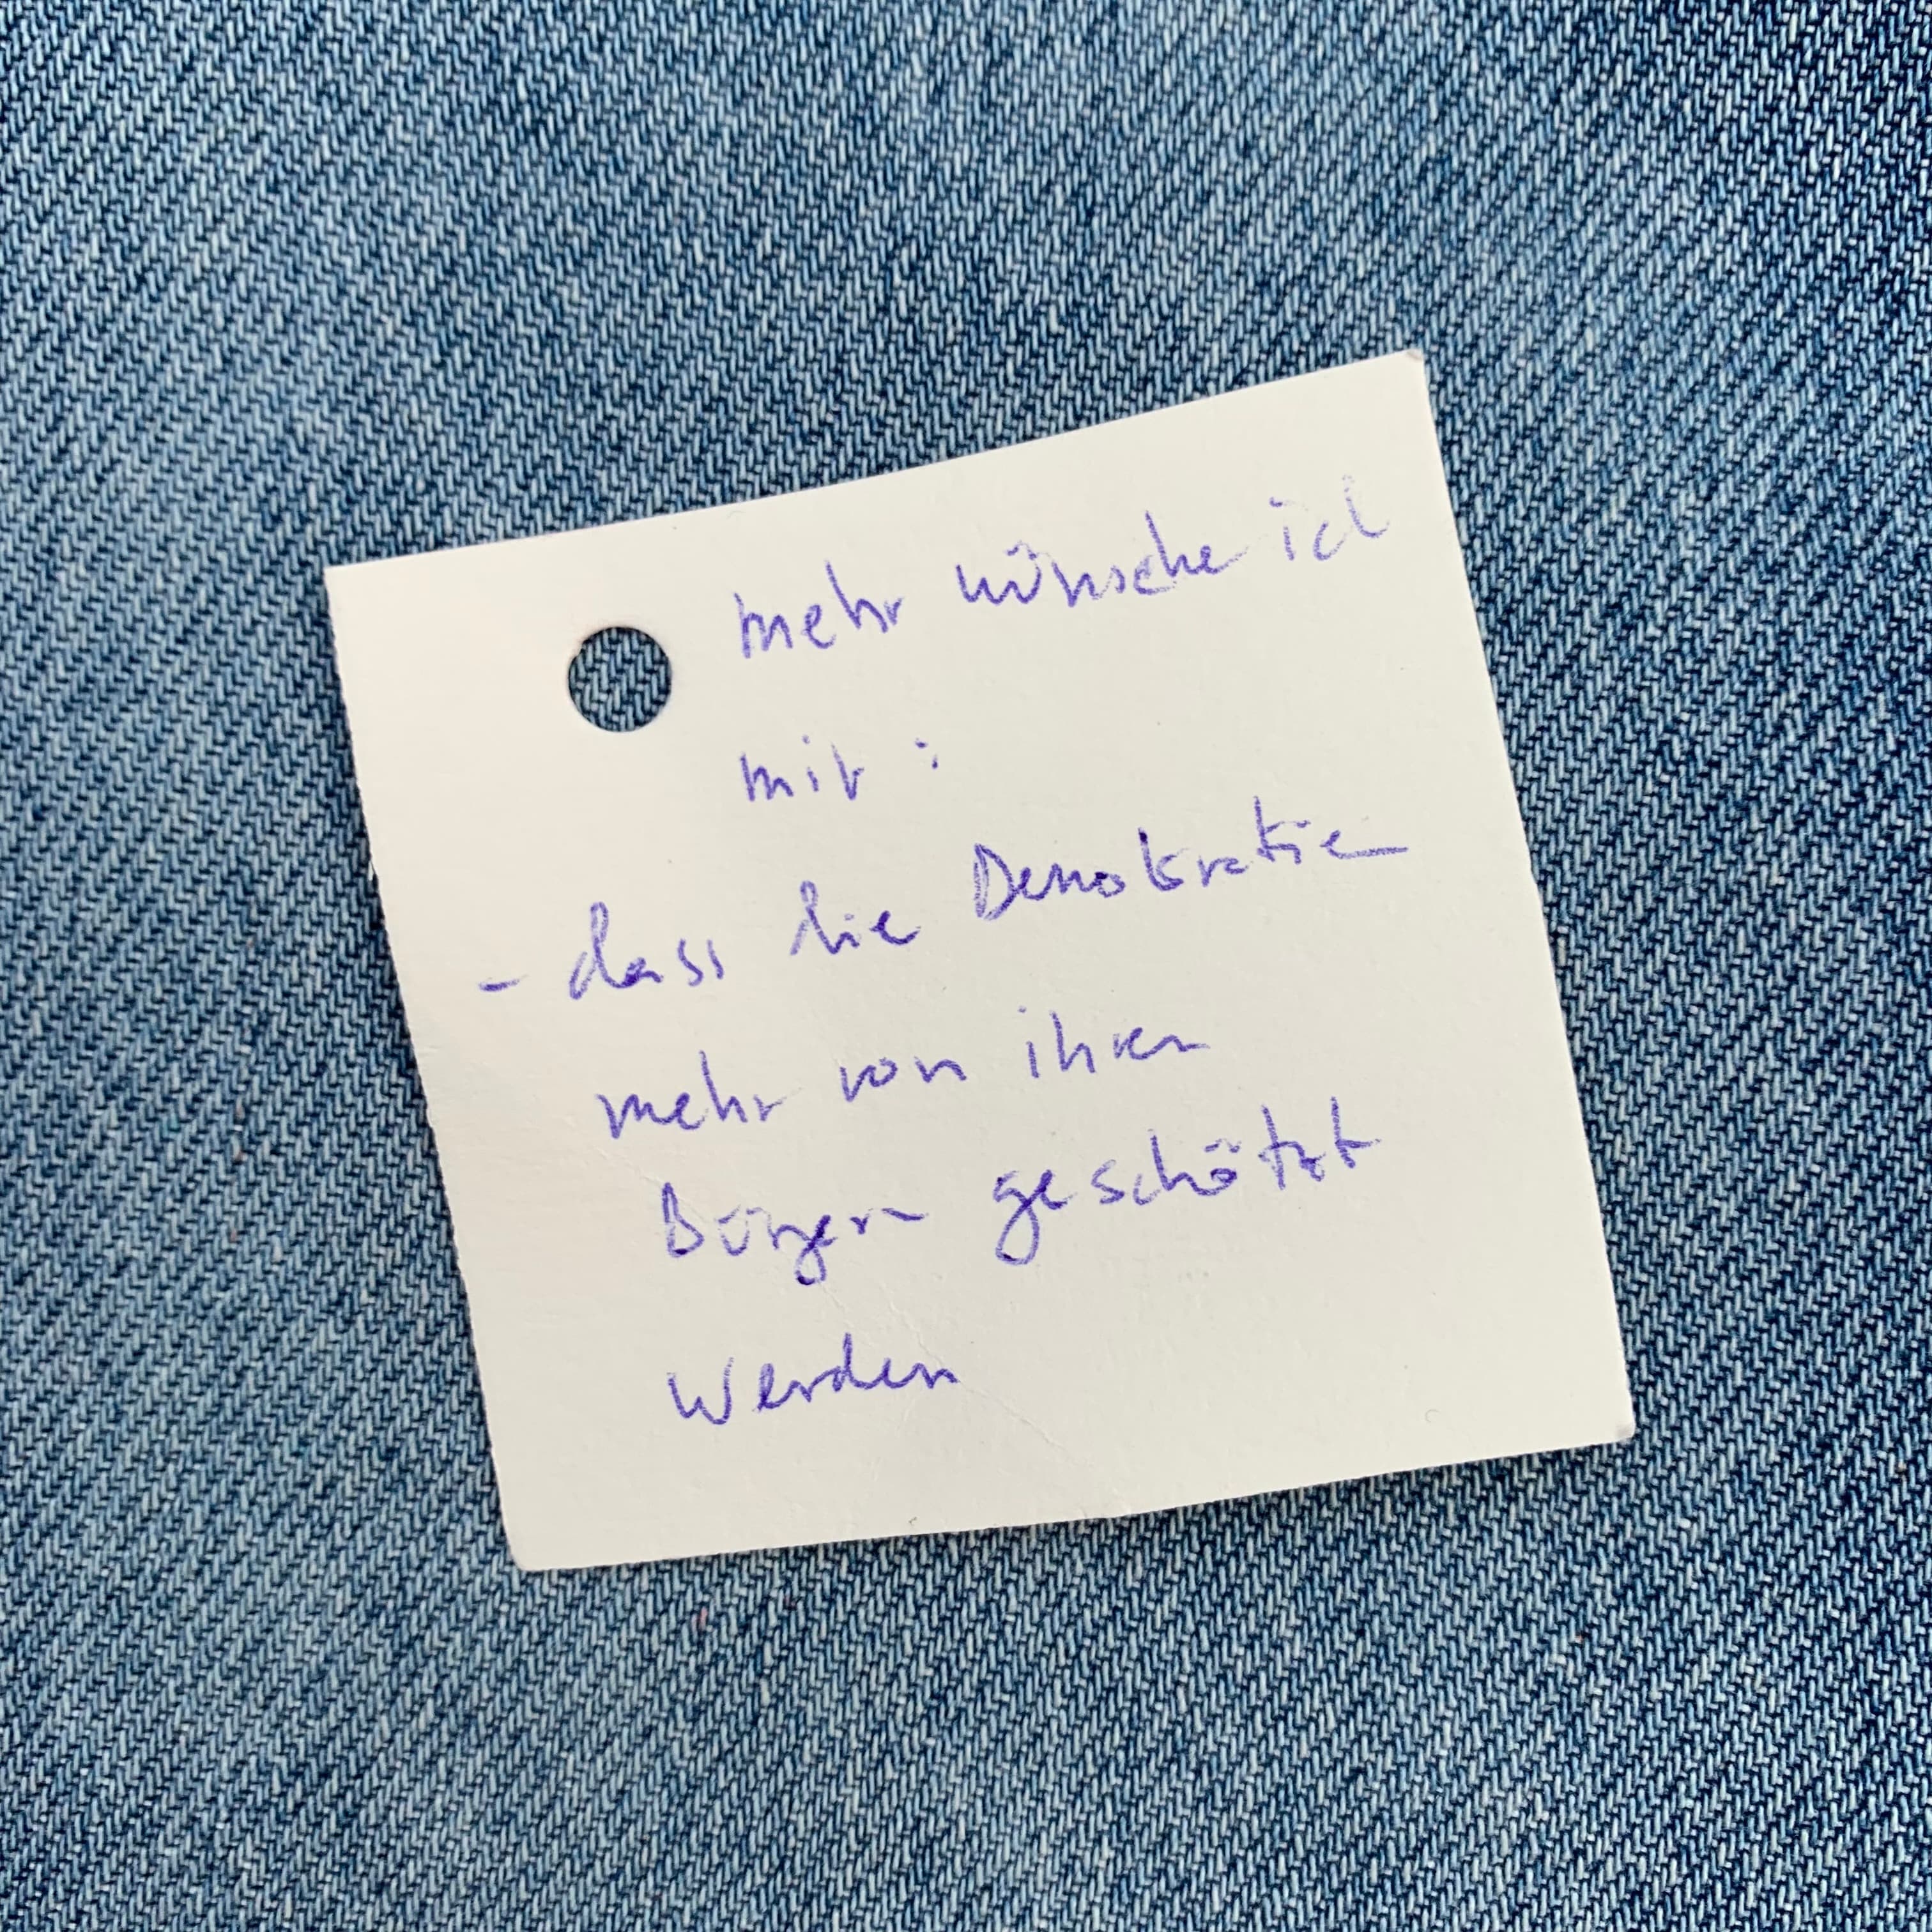 mehr wünsche ich
mir :
- dass die Demokratie
mehr von ihren
Bürgern geschätzt
werden